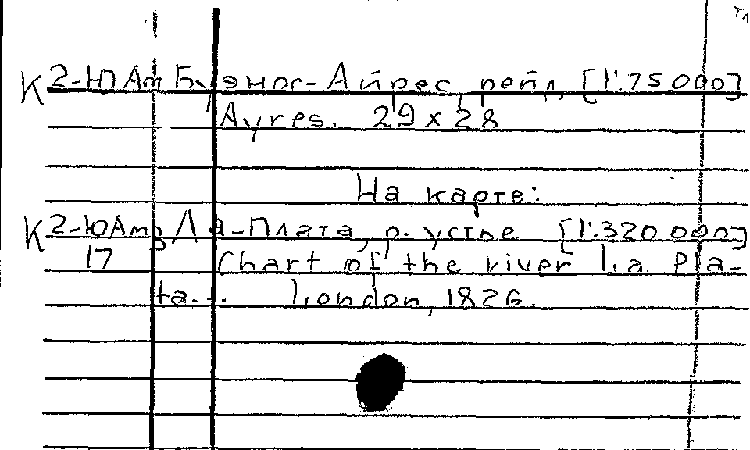 К 2-ЮАм Буэнос-Айрес, рейд [1:75000]
Ayres. 29 x 28
На карте:
К 2-ЮАм, Ла-Плата, р. устье [1:320 000]
17 Chart of the river La Pla-
ta... London, 1826.